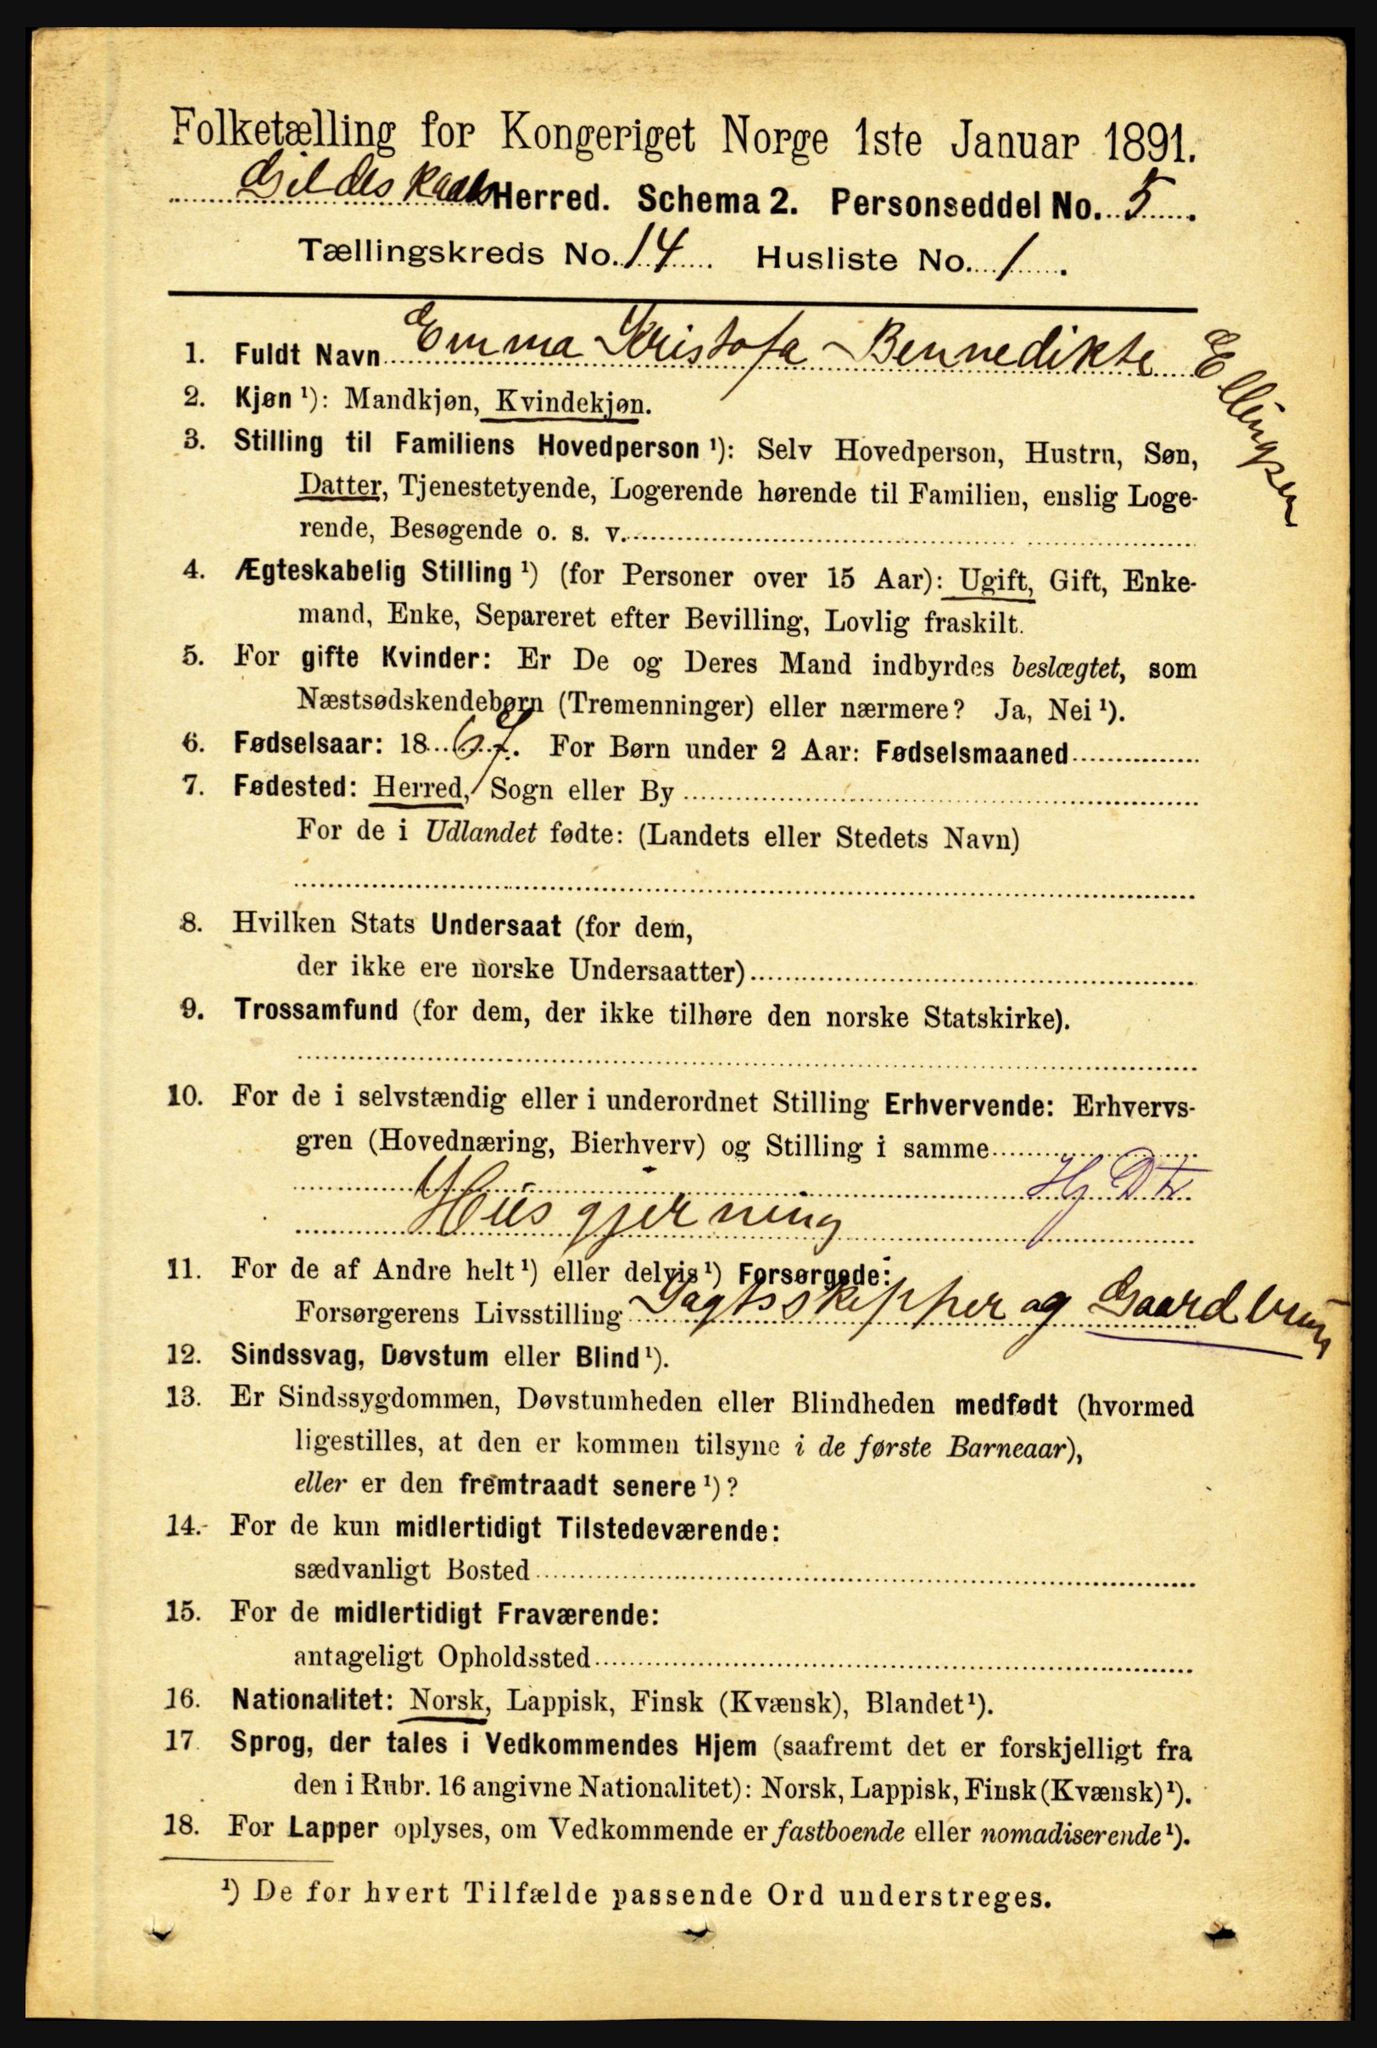 Folketælling for Kongeriget Norge 1ste Januar 1891.
Gildeskaals Herred. Schema 2. Personseddel No. 5.
Tællingskreds No. 14. Husliste No. 1.
1. Fuldt Navn Emma Kristofa Bennedikte Ellingsen
2. Kjøn ¹): Mandkjøn, Kvindekjøn.
3. Stilling til Familiens Hovedperson ¹): Selv Hovedperson, Hustru, Søn,
Datter, Tjenestetyende, Logerende hørende til Familien, enslig Loge-
rende, Besøgende o. s. v.
4. Ægteskabelig Stilling ¹) (for Personer over 15 Aar): Ugift, Gift, Enke-
mand, Enke, Separeret efter Bevilling, Lovlig fraskilt.
5. For gifte Kvinder: Er De og Deres Mand indbyrdes beslægtet, som
Næstsødskendebørn (Tremenninger) eller nærmere? Ja, Nei ¹).
6. Fødselsaar: 1867. For Børn under 2 Aar: Fødselsmaaned
7. Fødested: Herred, Sogn eller By
For de i Udlandet fødte: (Landets eller Stedets Navn)
8. Hvilken Stats Undersaat (for dem,
der ikke ere norske Undersaatter)
9. Trossamfund (for dem, der ikke tilhøre den norske Statskirke).
10. For de i selvstændig eller i underordnet Stilling Erhvervende: Erhvervs-
gren (Hovednæring, Bierhverv) og Stilling i samme
Hj Dtr
Husgjerning
11. For de af Andre helt ¹) eller delvis ¹) Forsørgede:
Forsørgerens Livsstilling Jagtsskipper og Gaardbrug
12. Sindssvag, Døvstum eller Blind ¹).
13. Er Sindssygdommen, Døvstumheden eller Blindheden medfødt (hvormed
ligestilles, at den er kommen tilsyne i de første Barneaar),
eller er den fremtraadt senere ¹)?
14. For de kun midlertidigt Tilstedeværende:
sædvanligt Bosted
15. For de midlertidigt Fraværende:
antageligt Opholdssted
16. Nationalitet: Norsk, Lappisk, Finsk (Kvænsk), Blandet ¹).
17. Sprog, der tales i Vedkommendes Hjem (saafremt det er forskjelligt fra
den i Rubr. 16 angivne Nationalitet): Norsk, Lappisk, Finsk (Kvænsk) ¹).
18. For Lapper oplyses, om Vedkommende er fastboende eller nomadiserende ¹).
¹) De for hvert Tilfælde passende Ord understreges.